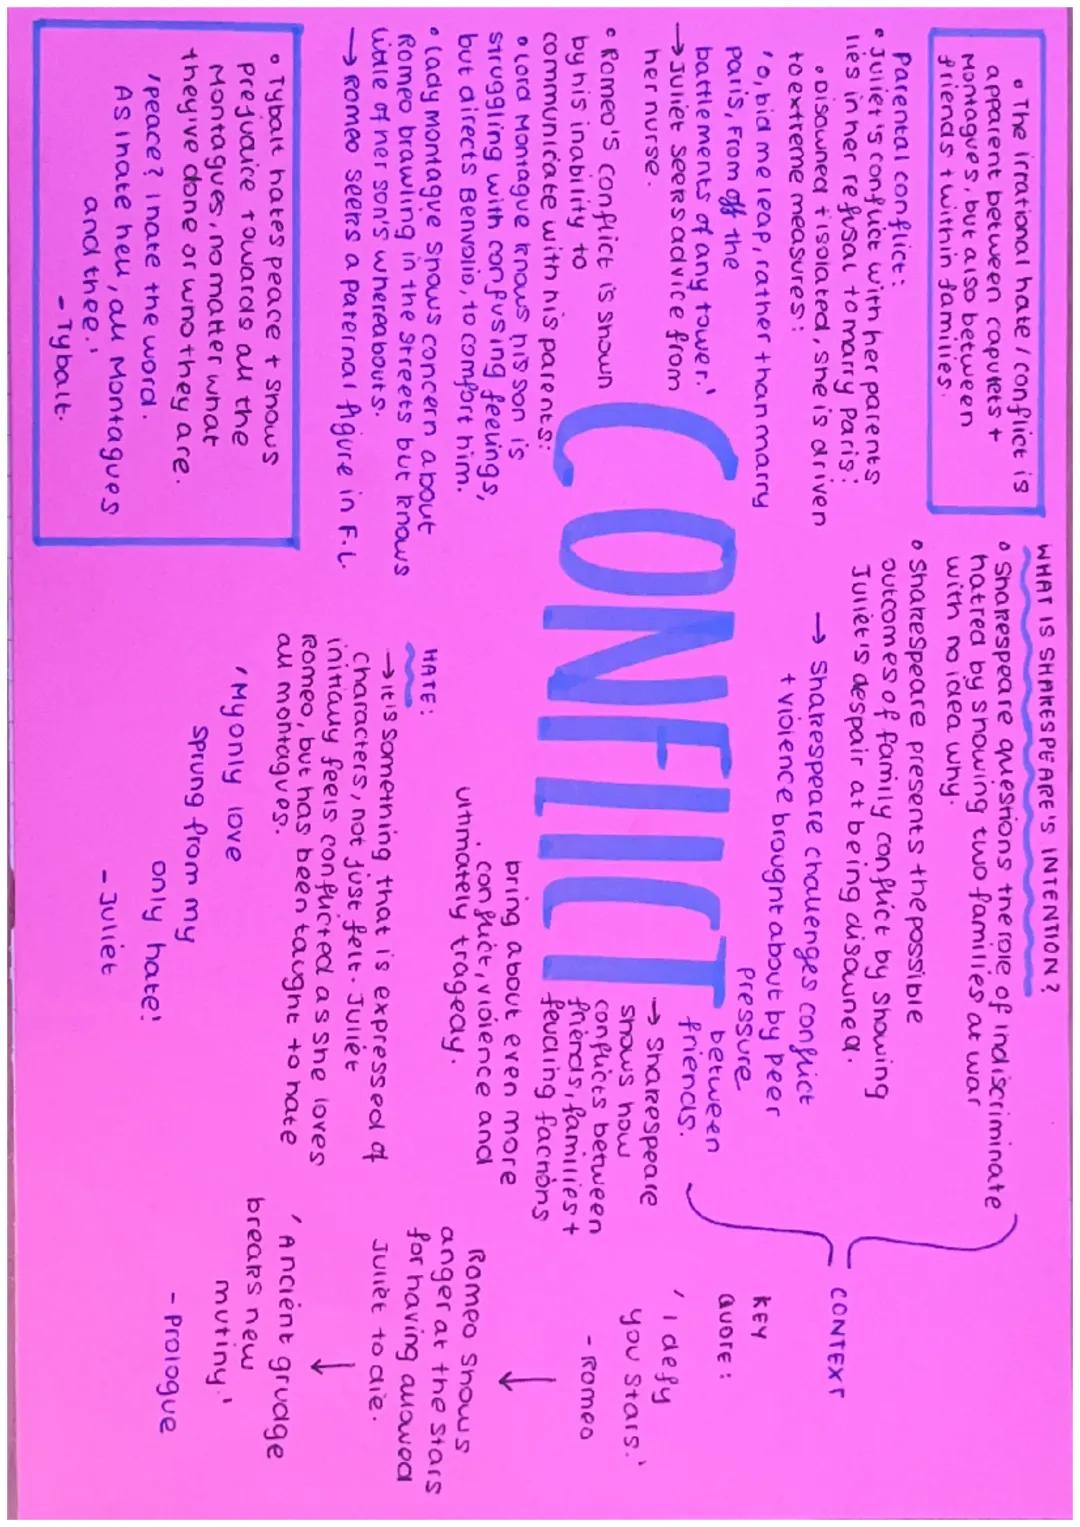 • The irrational hate/conflict is
apparent between capulets +
Montagues, but also between
friends + within families.
Parental conflict:
• Juliet's conflict with her parents
lies in her refusal to marry Paris:
• Disowned + isolated, she is driven
to extreme measures:
'O, bid me leap, rather than marry
Paris, From off the
battlements of any tower.'
→ Juliet seeks advice from
her nurse.
• Romeo's conflict is shown
by his inability to
communicate with his parents:
• Lord Montague knows his son is
struggling with confusing feelings,
but directs Benvolio, to comfort him.
• Lady Montague shows concern about
Romeo brawling in the streets but knows
little of her son's whereabouts.
→ Romeo seeks a paternal figure in F.L.
• Tybalt hates peace + shows
prejudice towards all the
Montagues, no matter what
they've done or who they are.
'Peace? I hate the word.
As I hate hell, all Montagues
and thee.'
- Tybalt.
CONFLICT
WHAT IS SHAKESPEARE'S INTENTION?
• Shakespeare questions the role of indiscriminate
hatred by showing two families at war
with no idea why.
• Shakespeare presents the possible
outcomes of family conflict by showing
Juliet's despair at being disowned.
→ Shakespeare challenges conflict
+ violence brought about by peer
pressure
between
friends.
→ Shakespeare
shows how
conflicts between
friends, families +
feuding factions
bring about even more
conflict, violence and
ultimately tragedy.
HATE:
→ It is something that is expressed of
characters, not just felt. Juliet
initially feels conflicted as she loves
Romeo, but has been taught to hate
all montagues.
'My only love
sprung from my
only hate!'
- Juliet
CONTEXT
KEY
QUOTE:
'I defy
you stars.'
- Romeo
↓
Romeo shows
anger at the stars
for having allowed
Juliet to die.
↓
'Ancient grudge
breaks new
mutiny.'
- Prologue